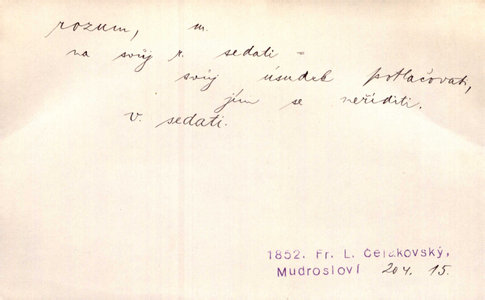 rozum, m.
na svůj r. sedati =
svůj úsudek potlačovati,
jím se neříditi.
V. sedati.
1852. Fr. L. Čelakovský,
Mudrosloví 204. 15.